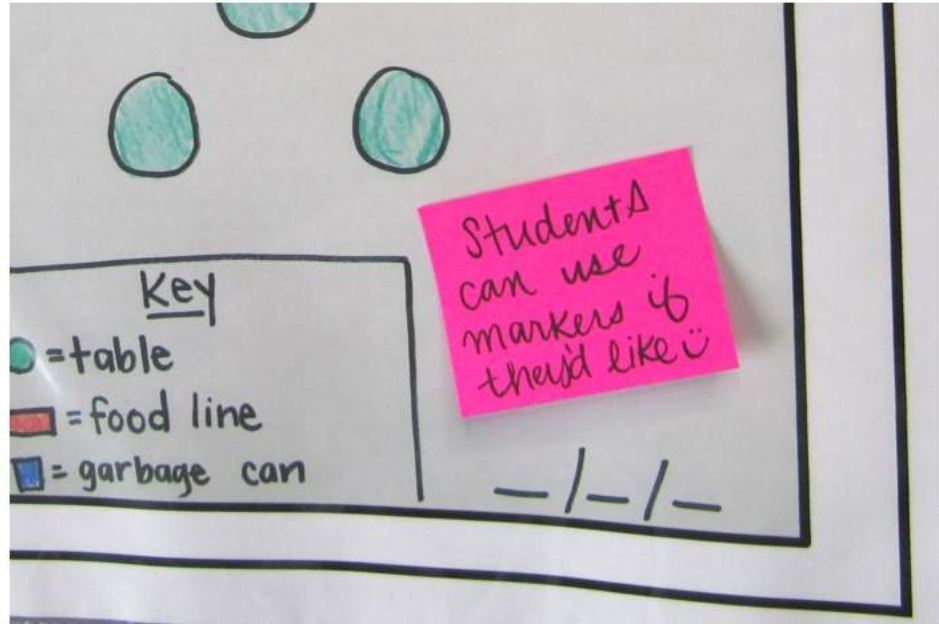 Students
can use
markers if
they'd like
Key
= table
= food line
= garbage can
_/_/_